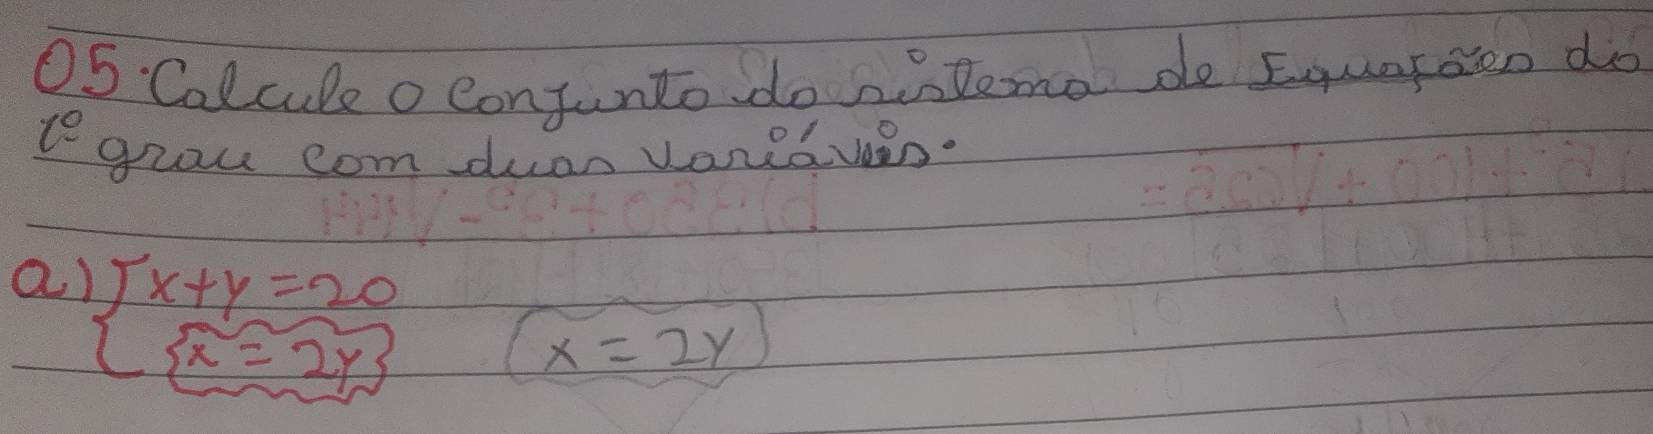 05. Calcule o conjunto do sistema de Equações do
1º grau com duas variáveis.
a) { x + y = 20
{ x = 2y } x = 2y